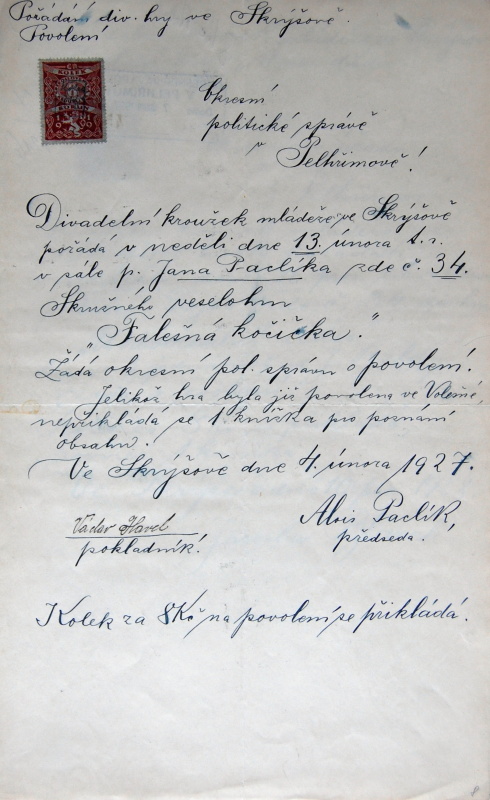 Pořádání div. hry ve Skrýšově.
Povolení
KOLEK
Okresní
politické správě
v
Pelhřimově!
Divadelní kroužek mládeže ve Skrýšově
pořádá v neděli dne 13. února t. r.
v sále p. Jana Paclíka zde č. 34.
Skružného veselohru
"Falešná kočička."
Žádá okresní pol. správu o povolení.
Jelikož hra byla již povolena ve Volešné,
nepřikládá se 1 knížka pro poznání
obsahu.
Ve Skrýšově dne 4. února 1927.
Václav Havel
pokladník.
Alois Paclík,
předseda.
Kolek za 8Kč na povolení se přikládá.